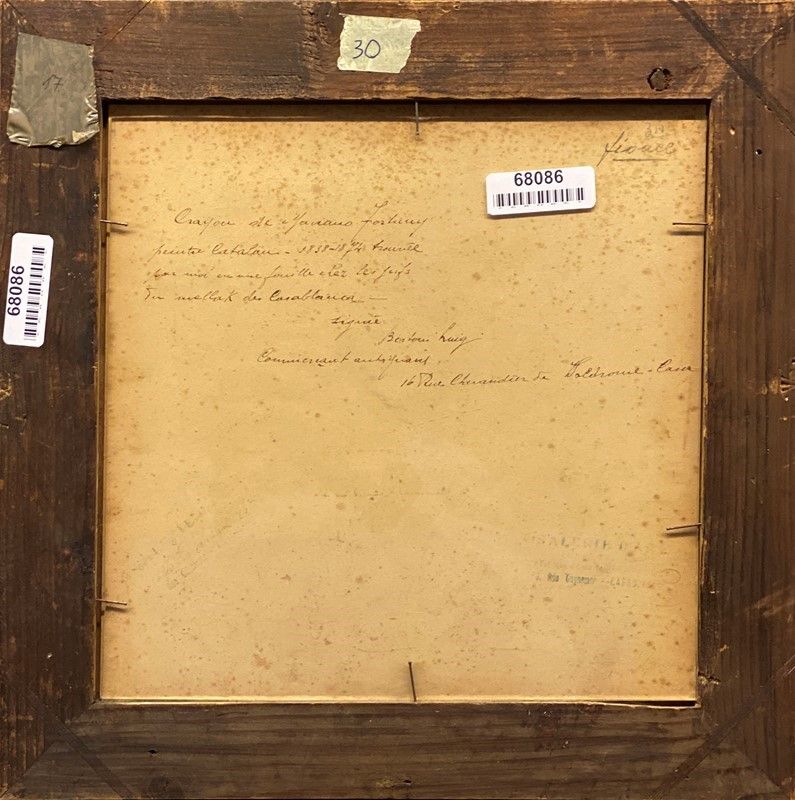 30
17
68086
68086
Crayon de Mariano Fortuny
peintre Catalan - 1838-1874 trouvée
par moi en une fouille chez les juifs
du mellah de Casablanca -
signé
Commercant antiquaire
16 Rue Chevandier de Valdrome - Casa
GALERIE D'
Rue